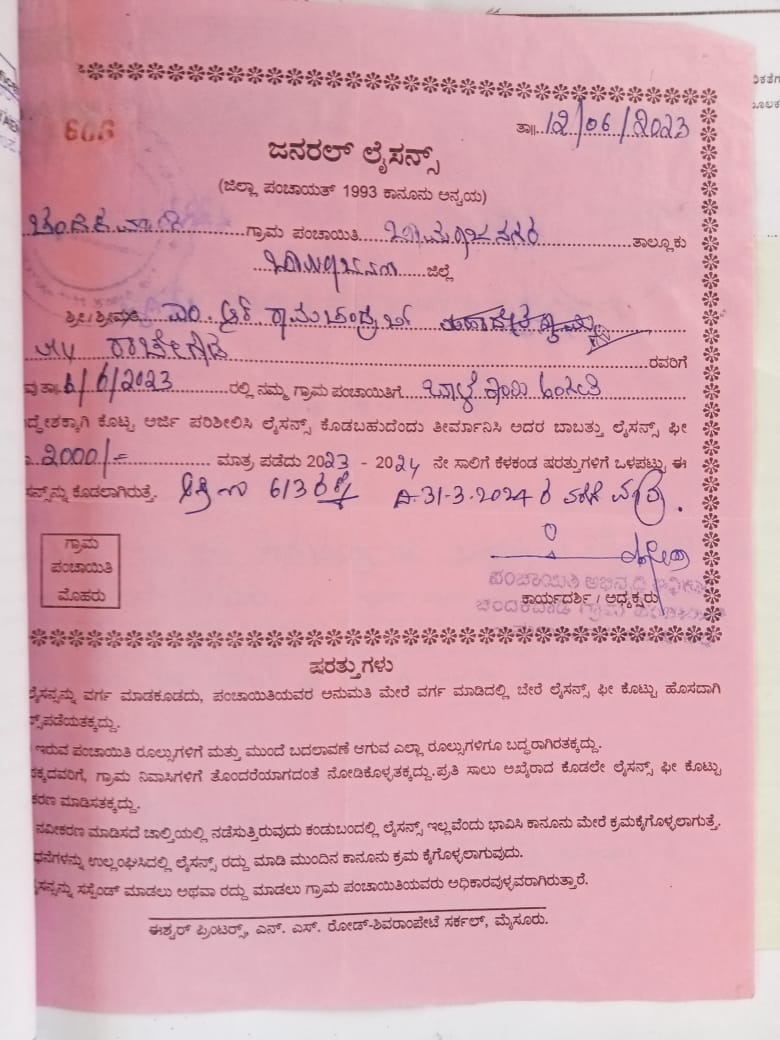 606
ತಾ॥ 12/06/2023
ಜನರಲ್ ಲೈಸನ್ಸ್
(ಜಿಲ್ಲಾ ಪಂಚಾಯತ್ 1993 ಕಾನೂನು ಅನ್ವಯ)
ಚಂದಕವಾಡಿ ಗ್ರಾಮ ಪಂಚಾಯಿತಿ ಚಾಮರಾಜನಗರ ತಾಲ್ಲೂಕು
ಜಿಲ್ಲೆ
ಶ್ರೀ/ಶ್ರೀಮತಿ ಎಂ. ಆರ್ ರಾಮಚಂದ್ರ
ರಾಚೇಗೌಡ ರವರಿಗೆ
ವು ತಾ. 6/6/2023 ರಲ್ಲಿ ನಮ್ಮ ಗ್ರಾಮ ಪಂಚಾಯಿತಿಗೆ
ದ್ದೇಶಕ್ಕಾಗಿ ಕೊಟ್ಟ ಅರ್ಜಿ ಪರಿಶೀಲಿಸಿ ಲೈಸನ್ಸ್ ಕೊಡಬಹುದೆಂದು ತೀರ್ಮಾನಿಸಿ ಅದರ ಬಾಬತ್ತು ಲೈಸನ್ಸ್ ಫೀ
2000/= ಮಾತ್ರ ಪಡೆದು 2023 - 2024 ನೇ ಸಾಲಿಗೆ ಕೆಳಕಂಡ ಷರತ್ತುಗಳಿಗೆ ಒಳಪಟ್ಟು ಈ
ನ್ಸ್‌ನ್ನು ಕೊಡಲಾಗಿರುತ್ತೆ. 613 ದಿ 31-3-2024 ರ ವರೆಗೆ ಮಾತ್ರ.
ಗ್ರಾಮ
ಪಂಚಾಯಿತಿ
ಮೊಹರು
ಪಂಚಾಯಿತಿ ಅಭಿವೃದ್ಧಿ ಅಧಿಕಾರಿ
ಕಾರ್ಯದರ್ಶಿ / ಅಧ್ಯಕ್ಷರು
ಚಂದಕವಾಡಿ ಗ್ರಾಮ ಪಂಚಾಯಿತಿ
ಷರತ್ತುಗಳು
ಲೈಸನ್ಸನ್ನು ವರ್ಗ ಮಾಡಕೂಡದು, ಪಂಚಾಯಿತಿಯವರ ಅನುಮತಿ ಮೇರೆ ವರ್ಗ ಮಾಡಿದಲ್ಲಿ ಬೇರೆ ಲೈಸನ್ಸ್ ಫೀ ಕೊಟ್ಟು ಹೊಸದಾಗಿ
ನ್ಸ್‌ಪಡೆಯತಕ್ಕದ್ದು.
ಇರುವ ಪಂಚಾಯಿತಿ ರೂಲ್ಸುಗಳಿಗೆ ಮತ್ತು ಮುಂದೆ ಬದಲಾವಣೆ ಆಗುವ ಎಲ್ಲಾ ರೂಲ್ಸುಗಳಿಗೂ ಬದ್ಧರಾಗಿರತಕ್ಕದ್ದು.
ಕ್ಕದವರಿಗೆ, ಗ್ರಾಮ ನಿವಾಸಿಗಳಿಗೆ ತೊಂದರೆಯಾಗದಂತೆ ನೋಡಿಕೊಳ್ಳತಕ್ಕದ್ದು.ಪ್ರತಿ ಸಾಲು ಅಖೈರಾದ ಕೊಡಲೇ ಲೈಸನ್ಸ್ ಫೀ ಕೊಟ್ಟು
ಕರಣ ಮಾಡಿಸತಕ್ಕದ್ದು.
ನವೀಕರಣ ಮಾಡಿಸದೆ ಚಾಲ್ತಿಯಲ್ಲಿ ನಡೆಸುತ್ತಿರುವುದು ಕಂಡುಬಂದಲ್ಲಿ ಲೈಸನ್ಸ್ ಇಲ್ಲವೆಂದು ಭಾವಿಸಿ ಕಾನೂನು ಮೇರೆ ಕ್ರಮಕೈಗೊಳ್ಳಲಾಗುತ್ತೆ.
ಧನೆಗಳನ್ನು ಉಲ್ಲಂಘಿಸಿದಲ್ಲಿ ಲೈಸನ್ಸ್ ರದ್ದು ಮಾಡಿ ಮುಂದಿನ ಕಾನೂನು ಕ್ರಮ ಕೈಗೊಳ್ಳಲಾಗುವುದು.
ಲೈಸನ್ಸನ್ನು ಸಸ್ಪೆಂಡ್ ಮಾಡಲು ಅಥವಾ ರದ್ದು ಮಾಡಲು ಗ್ರಾಮ ಪಂಚಾಯಿತಿಯವರು ಅಧಿಕಾರವುಳ್ಳವರಾಗಿರುತ್ತಾರೆ.
ಈಶ್ವರ್ ಪ್ರಿಂಟರ್ಸ್, ಎನ್. ಎಸ್. ರೋಡ್-ಶಿವರಾಂಪೇಟೆ ಸರ್ಕಲ್, ಮೈಸೂರು.